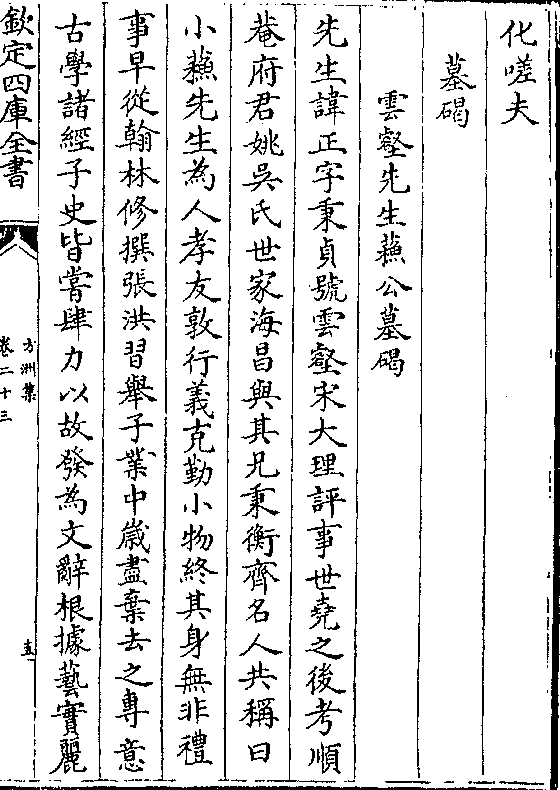 化嗟夫
墓碣
雲壑先生蘓公墓碣
先生諱正字秉貞號雲壑宋大理評事世堯之後考順
菴府君姚吳氏世家海昌與其兄秉衡齊名人共稱曰
小蘓先生為人孝友敦行義克勤小物終其身無非禮
事早從翰林修撰張洪習舉子業中嵗盡棄去之専意
古學諸經子史皆嘗肆力以故發為文辭根據藝實麗
欽定四庫全書
方洲集
卷二十三
五